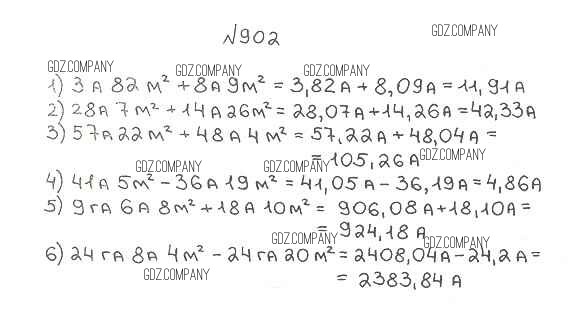 №902
GDZ.COMPANY
GDZ.COMPANY GDZ.COMPANY GDZ.COMPANY
1) 3а 82 м² + 8а 9м² = 3,82а + 8,09а = 11,91а
2) 28а 7м² + 14а 26м² = 28,07а + 14,26а = 42,33а
3) 57а 22м² + 48а 4м² = 57,22а + 48,04а =
= 105,26а GDZ.COMPANY
GDZ.COMPANY GDZ.COMPANY
4) 41а 5м² - 36а 19м² = 41,05а - 36,19а = 4,86а
5) 9га 6а 8м² + 18а 10м² = 906,08а + 18,10а =
= 924,18а
GDZ.COMPANY GDZ.COMPANY
6) 24га 8а 4м² - 24га 20м² = 2408,04а - 24,2а =
GDZ.COMPANY
= 2383,84а